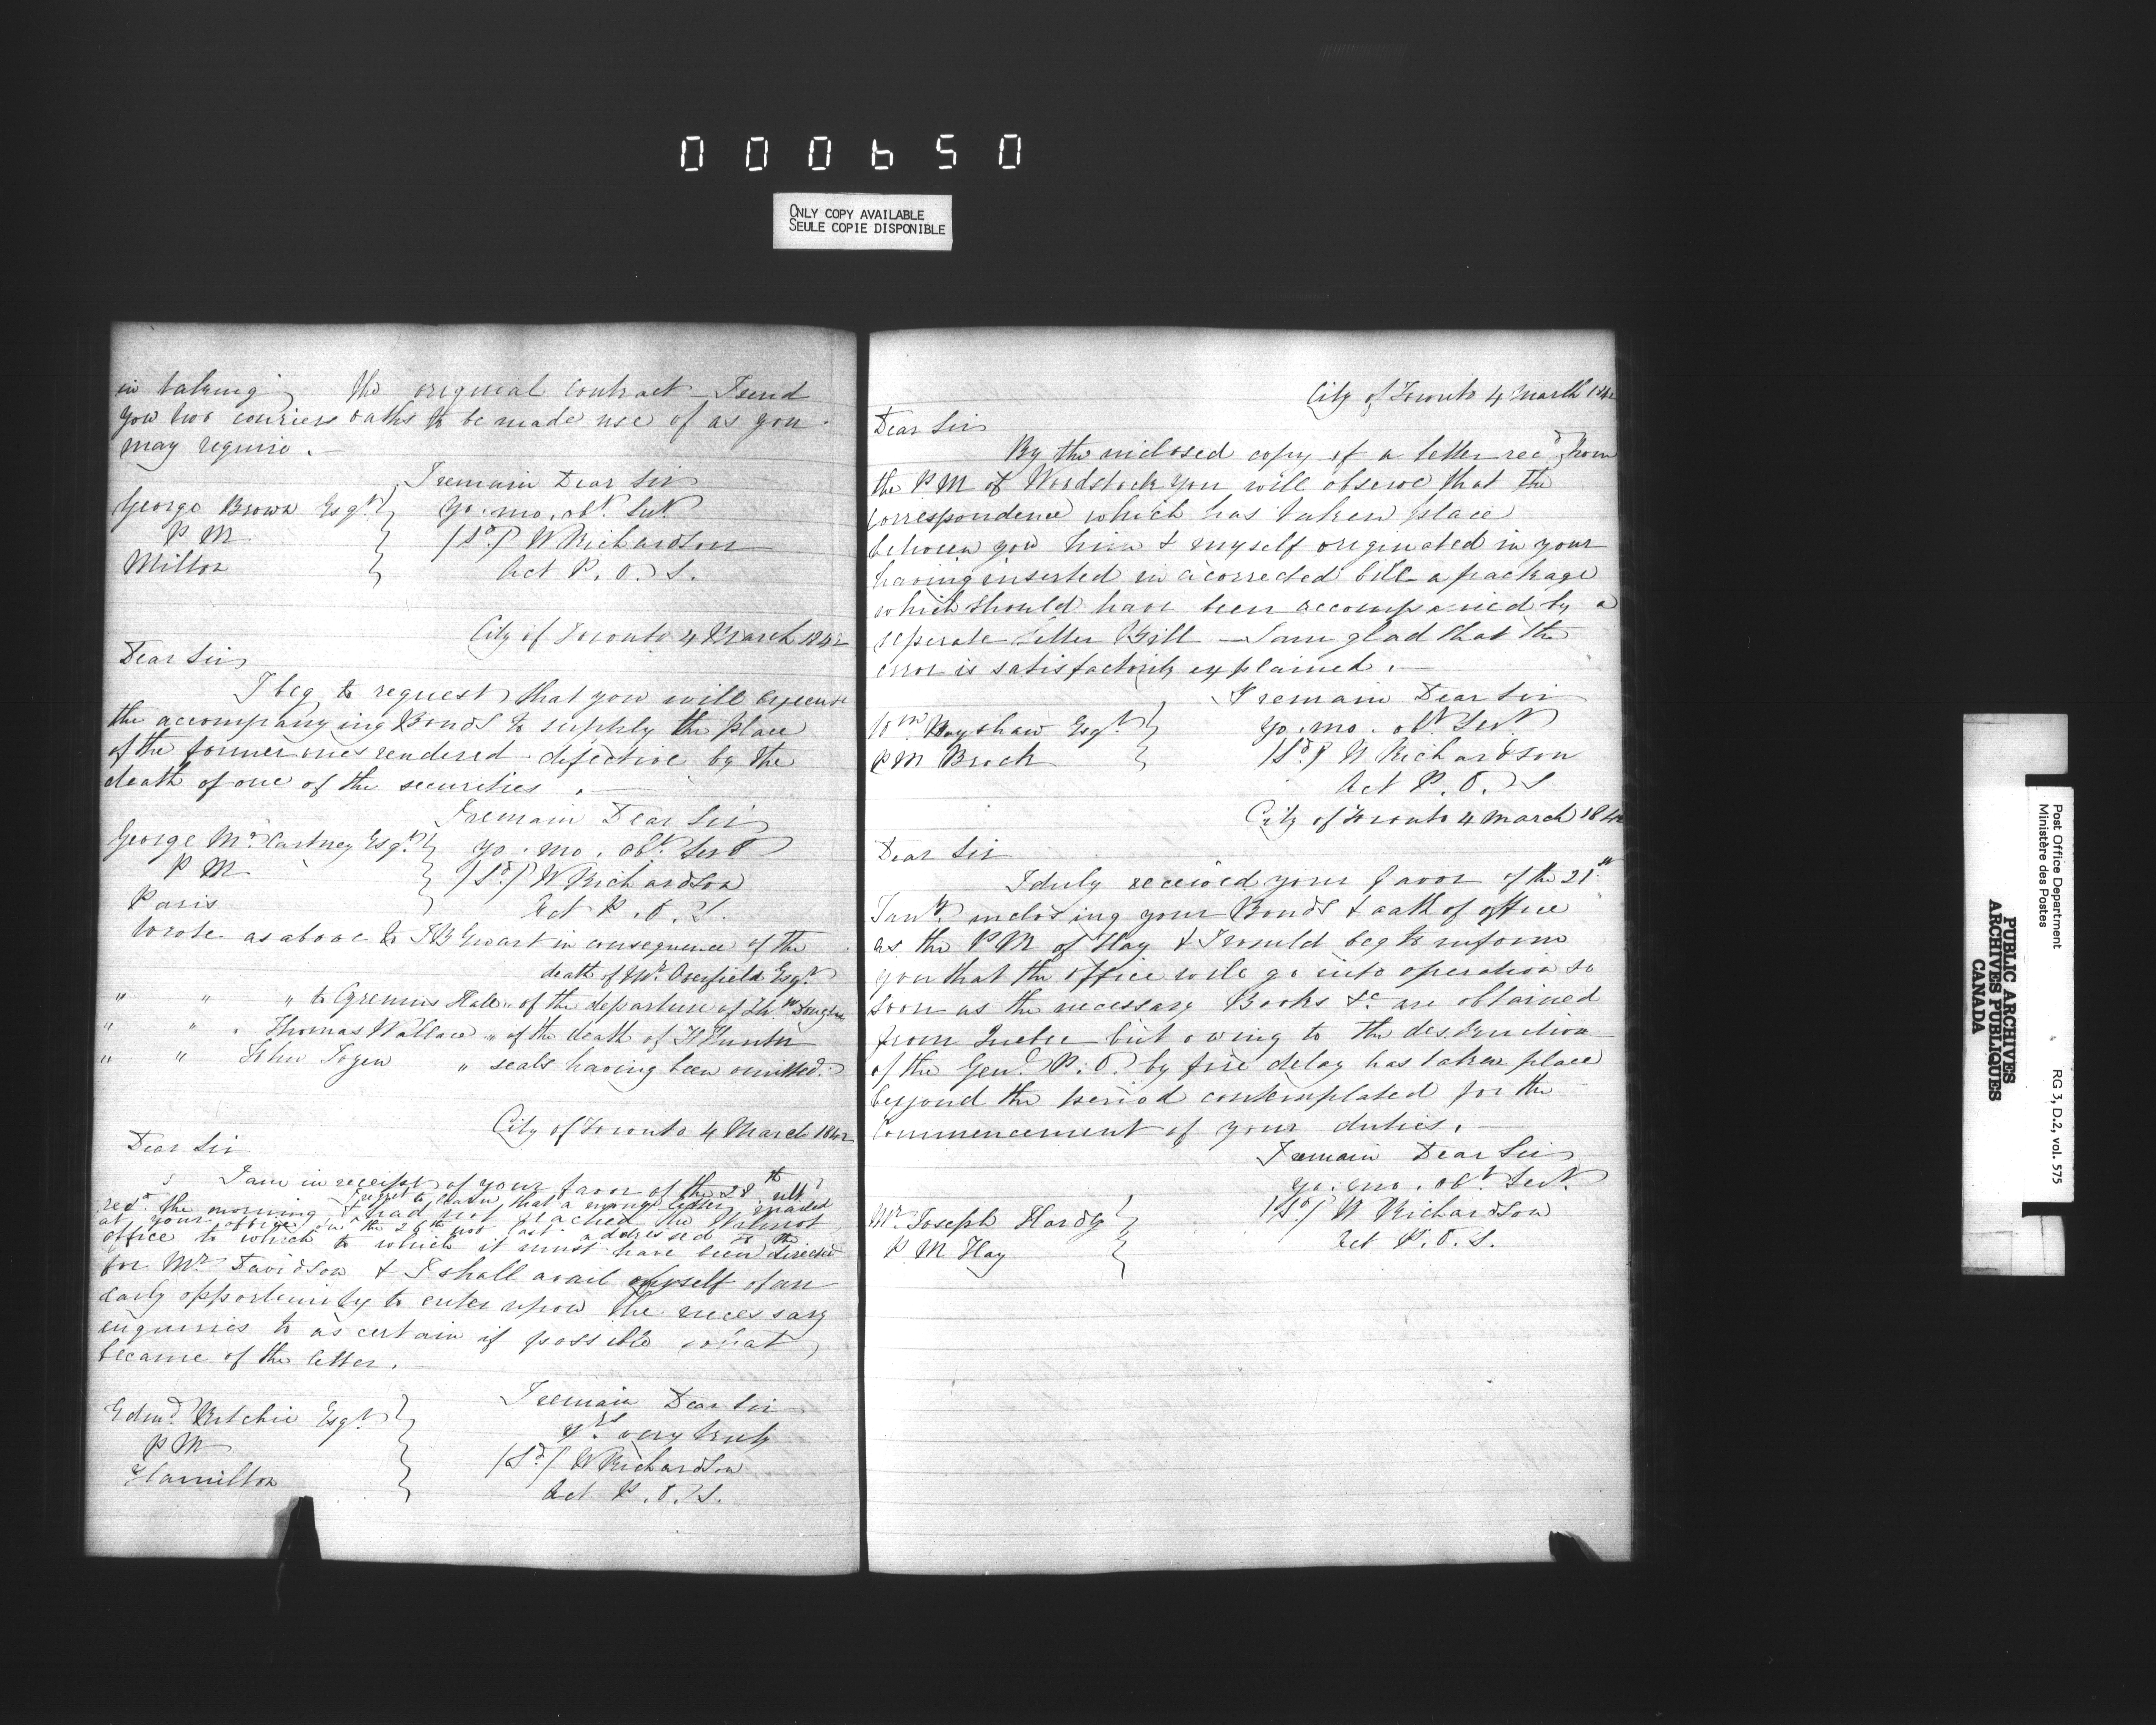 000650
ONLY COPY AVAILABLE
SEULE COPIE DISPONIBLE
in taking the original contract I send
you two couriers oaths to be made use of as you
may require.
I remain Dear Sir
George Brown Esqr. yo. mo. obt. Servt
P M (Sd.) W Richardson
Milton Act P. O. S.
City of Toronto 4 March 1842
Dear Sir
I beg to request that you will execute
the accompanying Bonds to supply the place
of the former ones rendered defective by the
death of one of the securities.
I remain Dear Sir
George McCartney Esqr. yo. mo. obt. Servt
P M (Sd.) W Richardson
Paris Act P. O. S.
Wrote as above to in consequence of the
death of Esqr.
" " " to Hale " of the departure of
" " " Thomas Wallace " of the death of Hunter
" " John " seals having been omitted.
City of Toronto 4 March 1842
Dear Sir
I am in receipt of your favor of the 28th ulto
recd. the morning & regret to learn that a money letter mailed
at your office on the 26th last addressed to the
had not reached the Wilmot
office to which to which it must have been directed
for Mr. Davidson & I shall avail myself of an
early opportunity to enter upon the necessary
enquiries to ascertain if possible what
became of the letter.
I remain Dear Sir
Edmd. Ritchie Esqr. yrs very truly
P M (Sd.) W Richardson
Hamilton Act P. O. S.
City of Toronto 4 March 1842
Dear Sir
By the inclosed copy of a letter recd. from
the P M of Woodstock you will observe that the
correspondence which has taken place
between you him & myself originated in your
having inserted in a corrected bill a package
which should have been accompanied by a
seperate Letter Bill — I am glad that the
error is satisfactorily explained.
I remain Dear Sir
Wm. Esqr. yo. mo. obt. Servt
P M Brock (Sd.) W Richardson
Act P. O. S
City of Toronto 4 March 1842
Dear Sir
I duly received your favor of the 21st
Jany. inclosing your Bonds & oath of office
as the P M of Hay & I would beg to inform
you that the office will go into operation so
soon as the necessary Books &c are obtained
from Quebec but owing to the destruction
of the Genl. P. O. by fire delay has taken place
beyond the period contemplated for the
commencement of your duties.
I remain Dear Sir
yo. mo. obt. Servt.
Mr. Joseph Hardy (Sd.) W Richardson
P M Hay Act P. O. S.
Post Office Department
Ministère des Postes
RG 3, D.2, vol. 575
PUBLIC ARCHIVES
ARCHIVES PUBLIQUES
CANADA